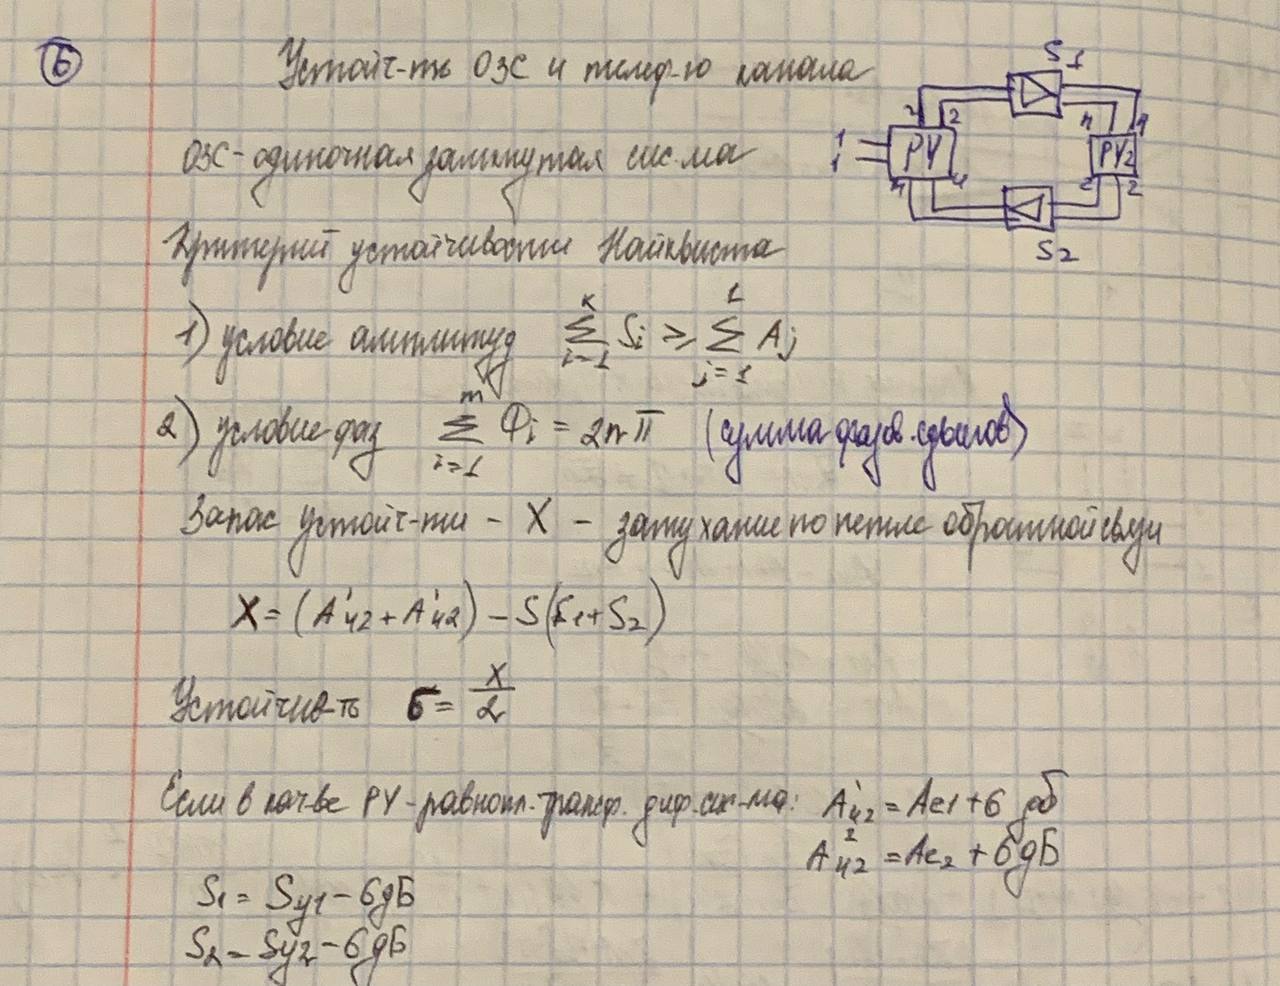 6 Устойч-ть ОЗС и телеф-го канала
S1
2 2 4 4
1 РУ РУ2
1 4 4 2 2
S2
ОЗС - одиночная замкнутая сис-ма
Критерий устойчивости Найквиста
1) условие амплитуд k∑i=1 Si ≥ 1∑j=1 Aj
2) условие фаз m∑i=1 Φi = 2nπ (сумма фазов. сдвигов)
Запас устойч-ти - X - затухание по петле обратной связи
X = (A'42 + A'42) - S(S1+S2)
Устойчив-ть б = X/2
Если в кач-ве РУ - равнопл. трансф. диф. сис-ма: A'42 = Ae1 + 6 дб
A²42 = Ae2 + 6 дБ
S1 = Sy1 - 6 дБ
S2 = Sy2 - 6 дБ